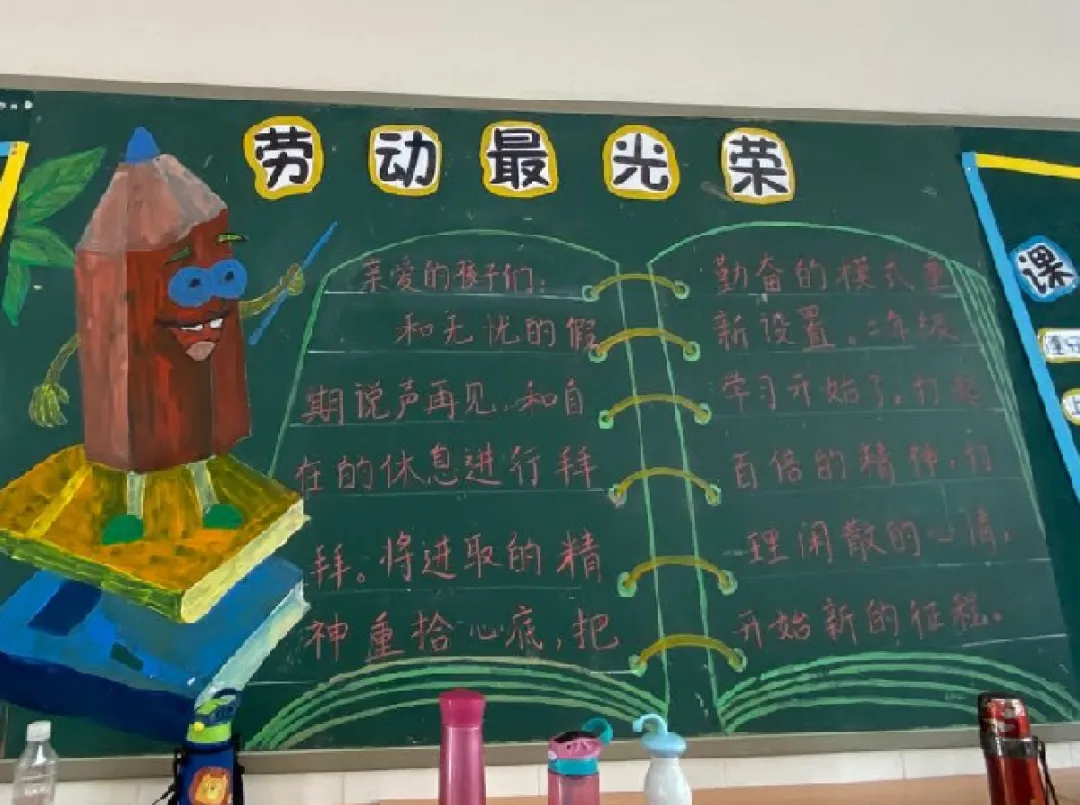 劳动最光荣
亲爱的孩子们：
和无忧的假
期说声再见，和自
在的休息进行拜
拜。将进取的精
神重拾心底，把
勤奋的模式重
新设置。二年级
学习开始了。打起
百倍的精神，打
理闲散的心情，
开始新的征程。
课